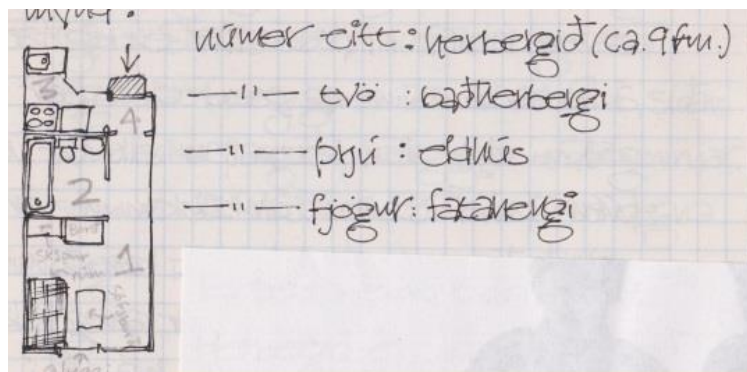 númer eitt: herbergið (ca. 9 fm.)
—"— tvö : baðherbergi
—"— þrjú : eldhús
—"— fjögur: fatahengi
3
4
2
1